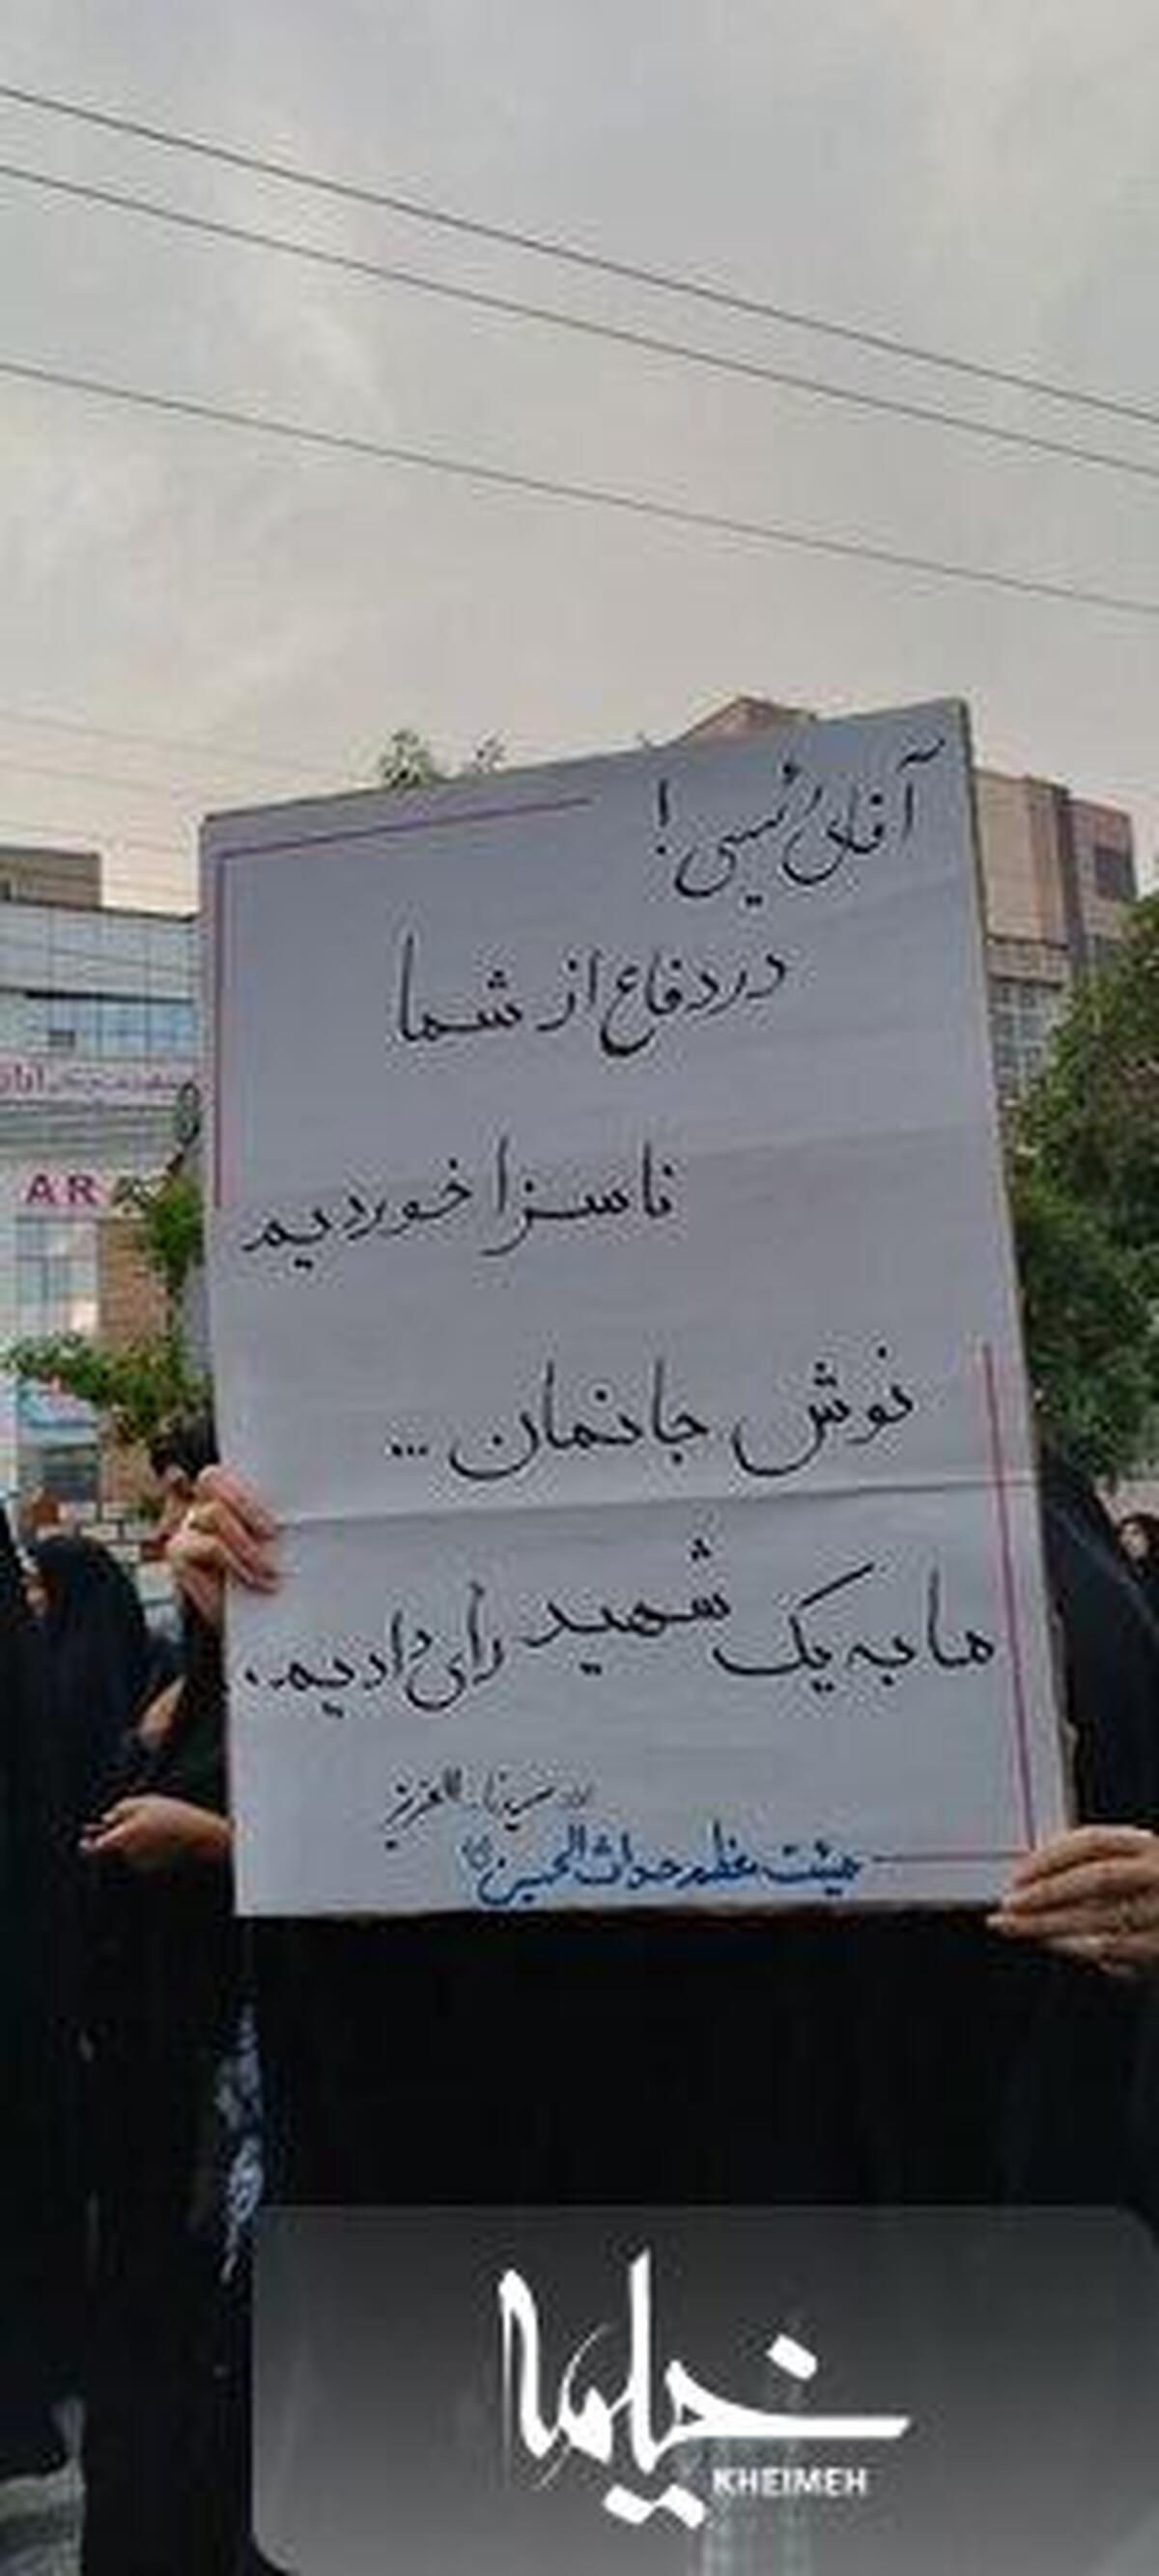 آقای رئیسی!
در دفاع از شما
ناسزا خوردیم
نوش جانمان ...
ما به یک شهید رأی دادیم..
هیئت معظم الحسین
ARA
خیمه
KHEIMEH